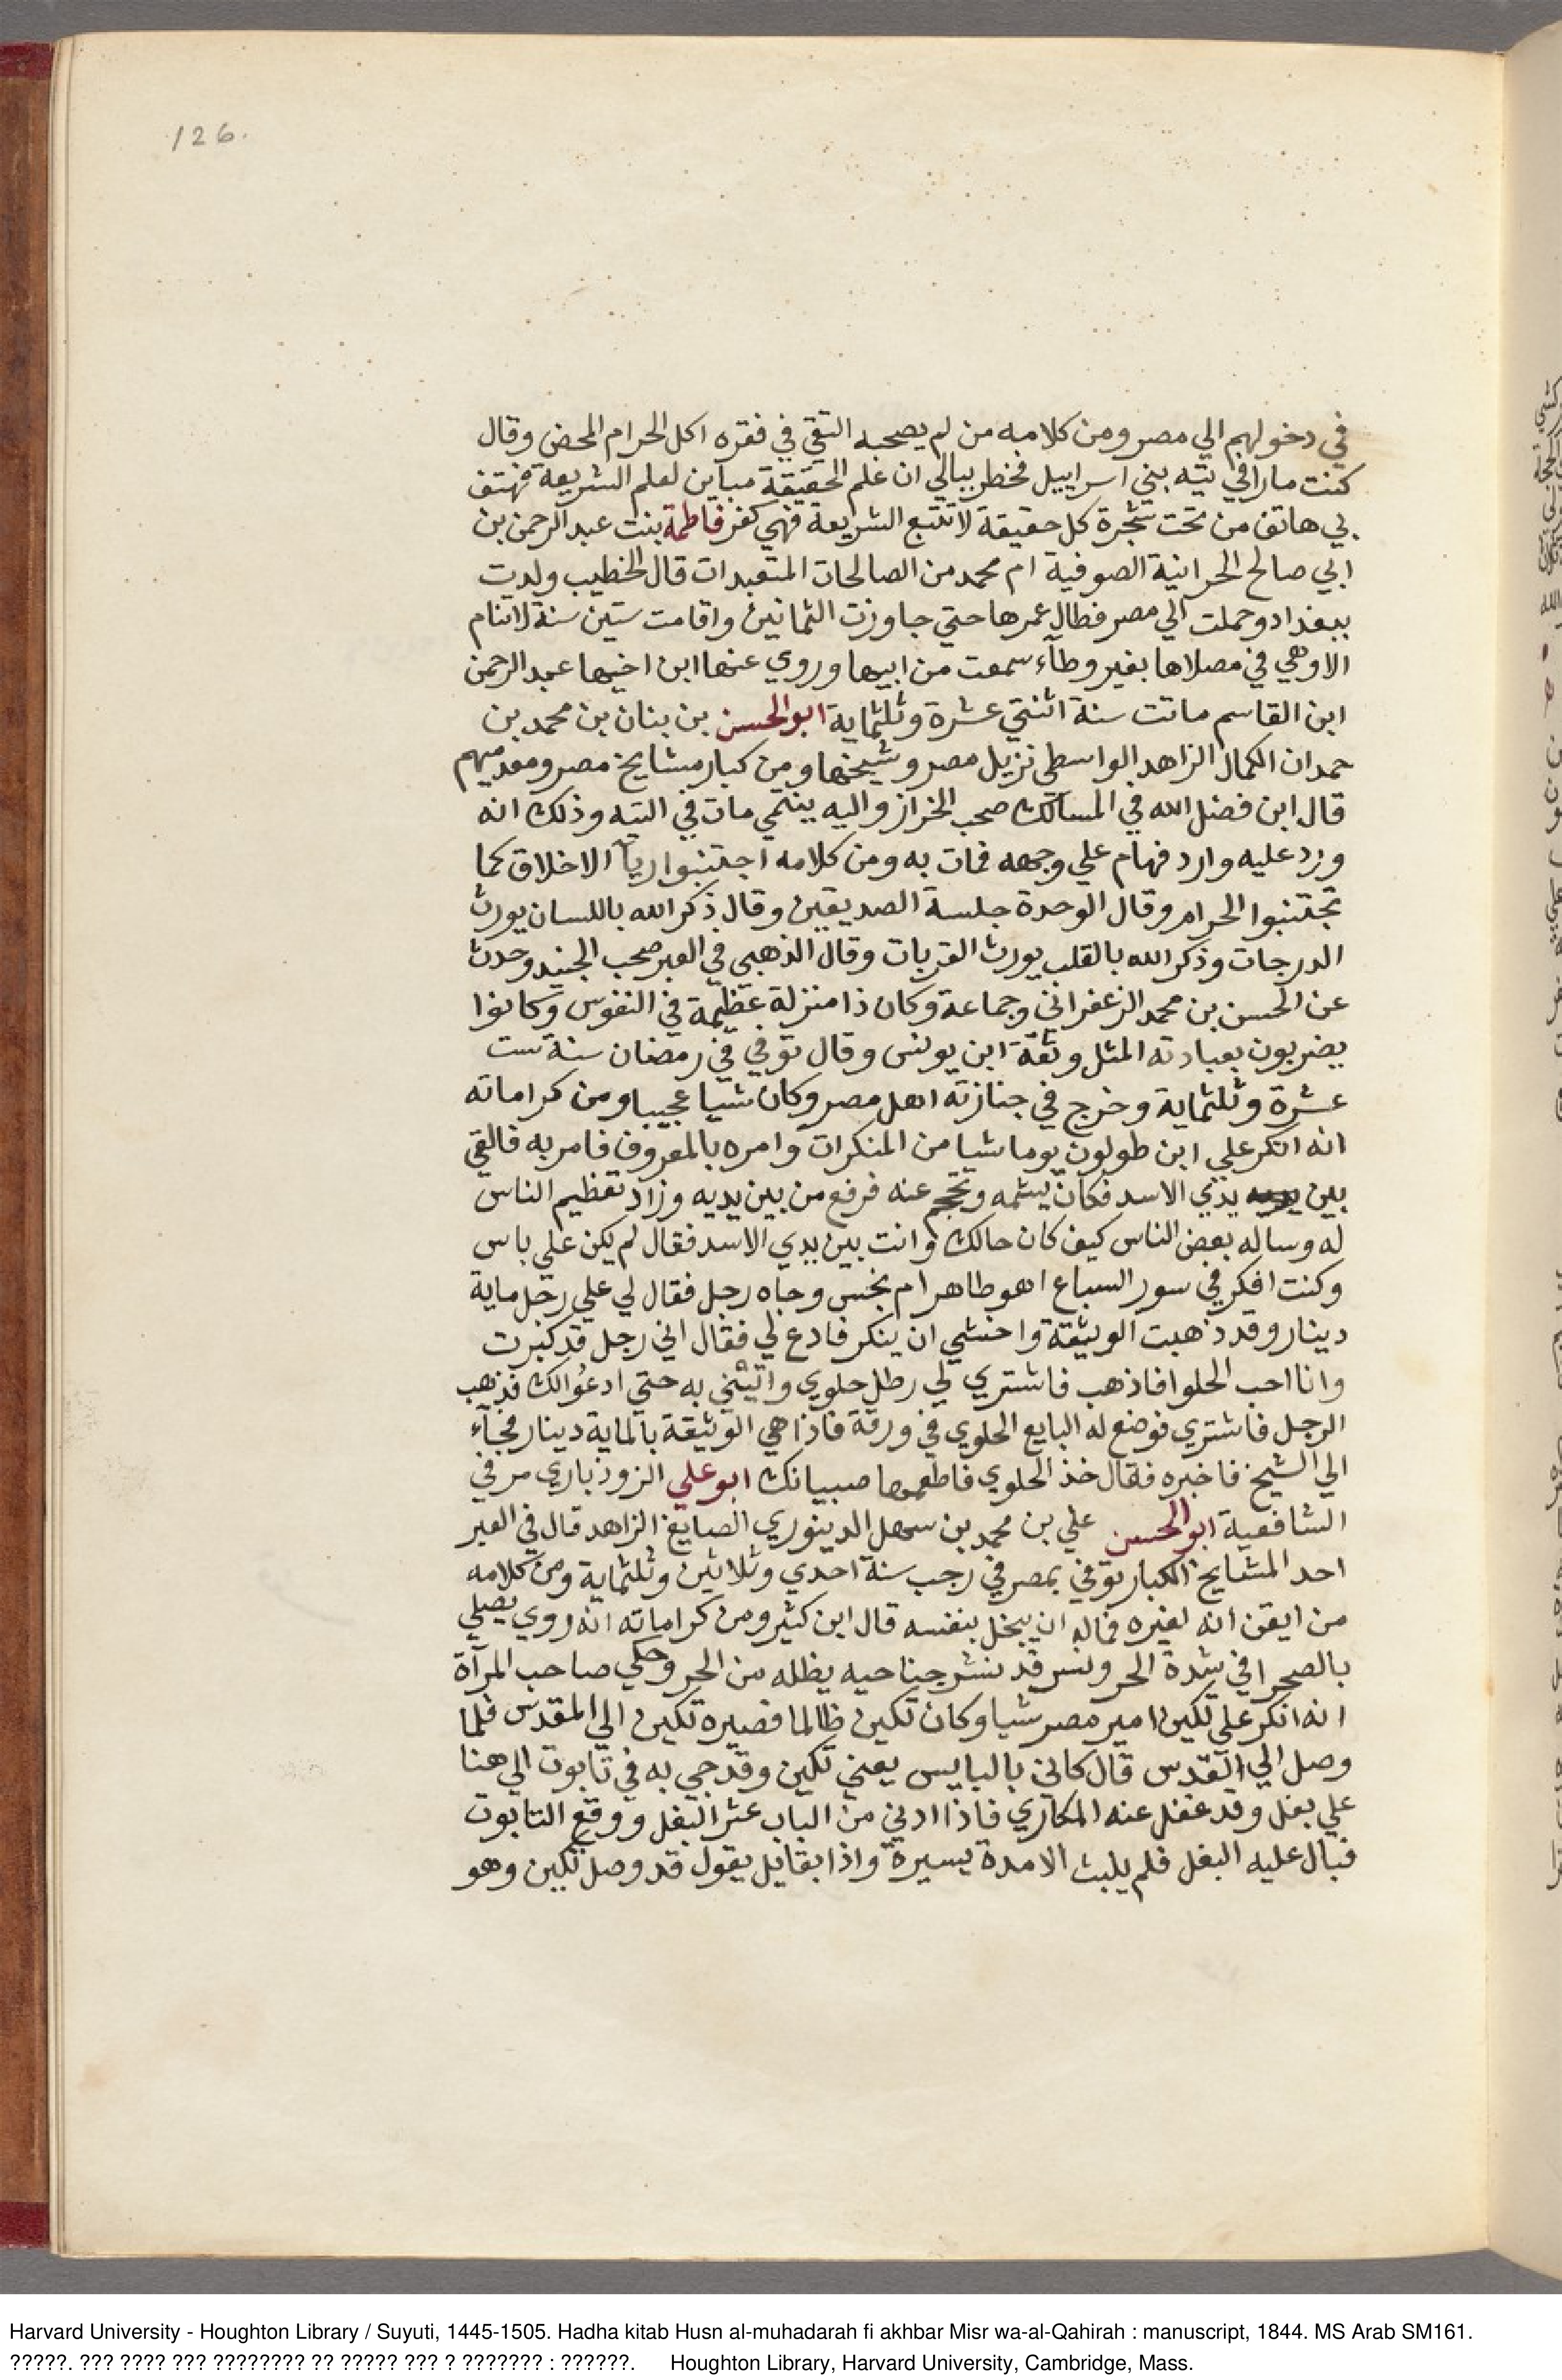 126.
في دخولهم الي مصر ومن كلامه من لم يصحبه التقي في فقره اكل الحرام المحض وقال
كنت مارا في تيه بني اسراييل فخطر ببالي ان علم الحقيقة مباين لعلم الشريعة فهتف
بي هاتف من تحت شجرة كل حقيقة لا تتبع الشريعة فهي كفر فاطمة بنت عبد الرحمن بن
ابي صالح الحرانية الصوفية ام محمد من الصالحات المتعبدات قال الخطيب ولدت
ببغداد وحملت الي مصر فطال عمرها حتي جاوزت الثمانين واقامت ستين سنة لا تنام
الا وهي في مصلاها بغير وطآء سمعت من ابيها وروي عنها ابن اخيها عبد الرحمن
ابن القاسم ماتت سنة اثنتي عشرة وثلثماية ابو الحسن بن بنان بن محمد بن
حمدان الكمال الزاهد الواسطي نزيل مصر وشيخها ومن كبار مشايخ مصر ومقدميهم
قال ابن فضل الله في المسالك صحب الخراز واليه ينتمي مات في التيه وذلك انه
ورد عليه وارد فهام علي وجهه فمات به ومن كلامه اجتنبوا ريآ الاخلاق كما
تجتنبوا الحرام وقال الوحدة جلسة الصديقين وقال ذكر الله باللسان يورث
الدرجات وذكر الله بالقلب يورث القربات وقال الذهبي في العبر صحب الجنيد وحدث
عن الحسن بن محمد الزعفراني وجماعة وكان ذا منزلة عظيمة في النفوس وكانوا
يضربون بعبادته المثل وثقه ابن يونس وقال توفي في رمضان سنة ست
عشرة وثلثماية وخرج في جنازته اهل مصر وكان شيا عجيبا ومن كراماته
انه انكر علي ابن طولون يوما شيا من المنكرات وامره بالمعروف فامر به فالقي
بين يدي الاسد فكان يشمه ويحجم عنه فرفع من بين يديه وزاد تعظيم الناس
له وساله بعض الناس كيف كان حالك وانت بين يدي الاسد فقال لم يكن علي باس
وكنت افكر في سور السباع اهو طاهر ام نجس وجاه رجل فقال لي علي رجل ماية
دينار وقد ذهبت الوثيقة واخشي ان ينكر فادع لي فقال اني رجل قد كبرت
وانا احب الحلوا فاذهب فاشتري لي رطل حلوي واتيني به حتي ادعوا لك فذهب
الرجل فاشتري فوضع له البايع الحلوي في ورقة فاذا هي الوثيقة بالماية دينار فجآء
الي الشيخ فاخبره فقال خذ الحلوي فاطعمها صبيانك ابو علي الروذباري مر في
الشافعية ابو الحسن علي بن محمد بن سهل الدينوري الصايغ الزاهد قال في العبر
احد المشايخ الكبار توفي بمصر في رجب سنة احدي وثلاثين وثلثماية ومن كلامه
من ايقن انه لغيره فماله ان يبخل بنفسه قال ابن كثير ومن كراماته انه روي يصلي
بالصحرا في شدة الحر ونسر قد نشر جناحيه يظله من الحر وحكي صاحب المرآة
انه انكر علي تكين امير مصر شيا وكان تكين ظالما فصيره تكين الي المقدس فلما
وصل الي القدس قال كاني بالبايس يعني تكين وقد جي به في تابوت الي هنا
علي بغل وقد غفل عنه المكاري فاذا ادني من الباب عثر البغل ووقع التابوت
فبال عليه البغل فلم يلبث الا مدة يسيرة واذا بقايل يقول قد وصل تكين وهو
Harvard University - Houghton Library / Suyuti, 1445-1505. Hadha kitab Husn al-muhadarah fi akhbar Misr wa-al-Qahirah : manuscript, 1844. MS Arab SM161.
?????. ??? ???? ??? ???????? ?? ????? ??? ? ??????? : ??????. Houghton Library, Harvard University, Cambridge, Mass.